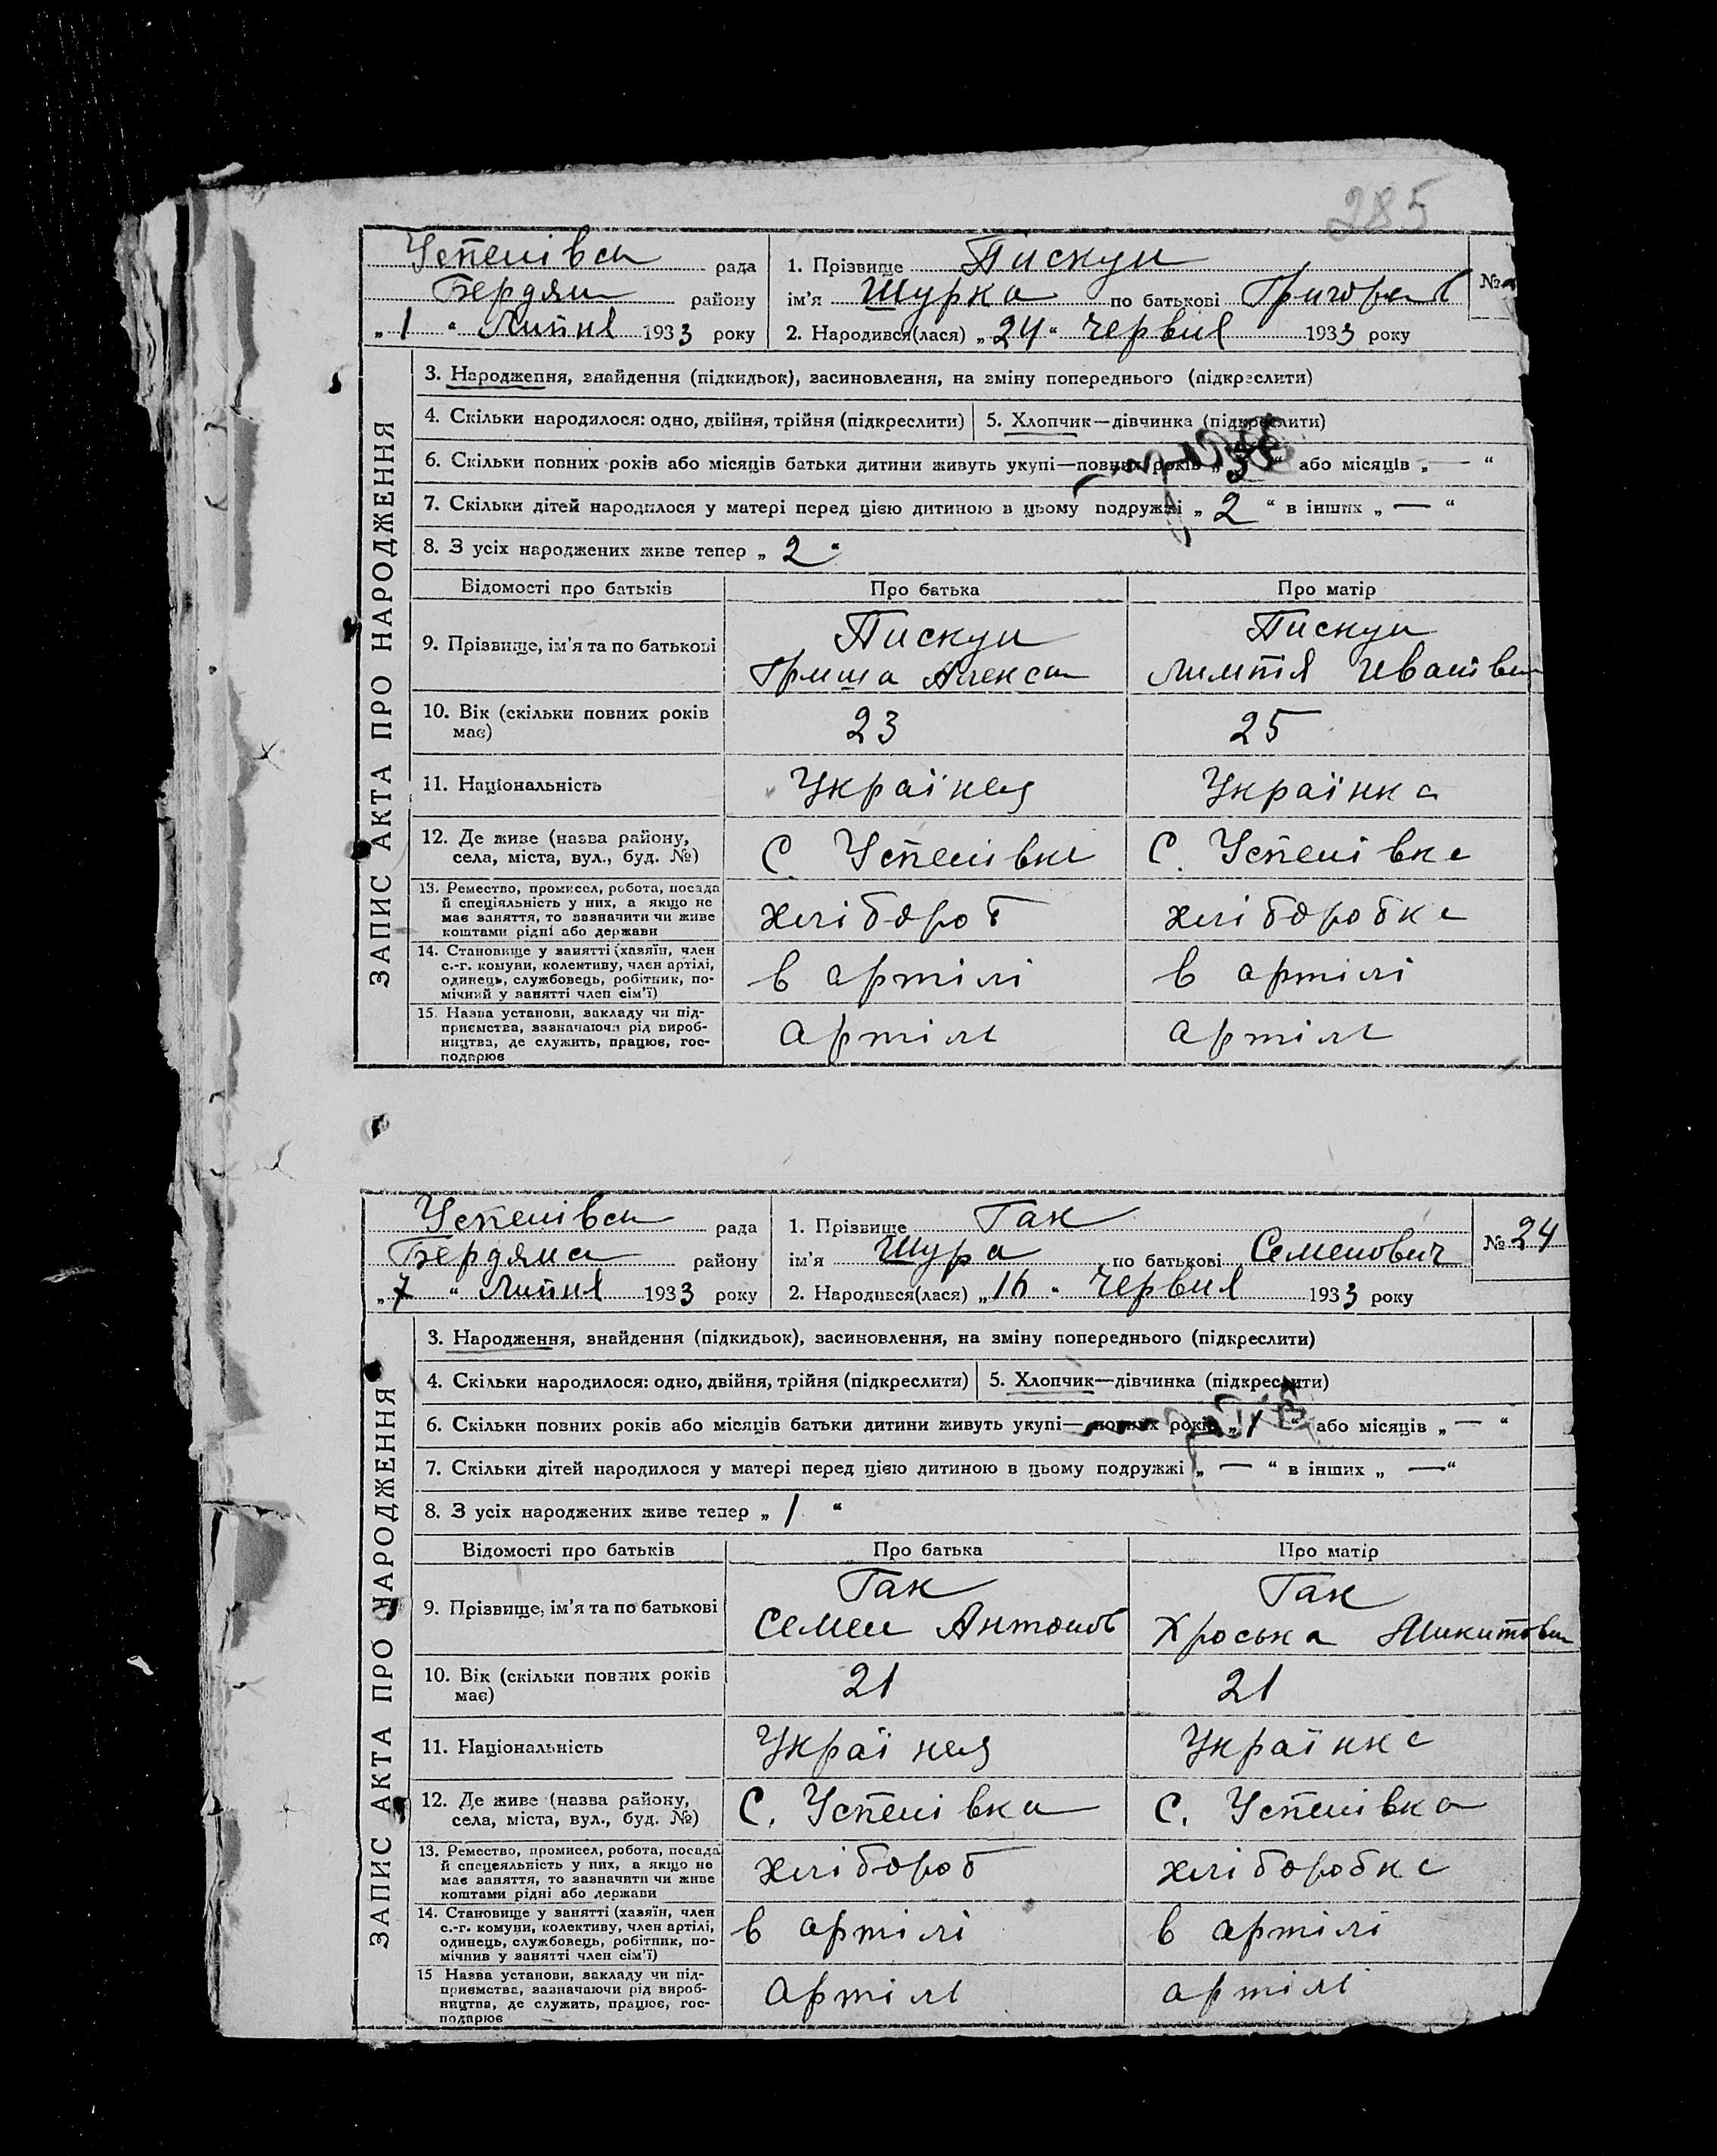 285
Успенівськ рада
Бердян району
„1“ Липня 1933 року
1. Прізвище Пискун
ім'я Шурка по батькові Григоров
№
2. Народився(лася) „24“ Червня 1933 року
ЗАПИС АКТА ПРО НАРОДЖЕННЯ
3. Народження, знайдення (підкидьок), засиновлення, на зміну попереднього (підкреслити)
4. Скільки народилося: одно, двійня, трійня (підкреслити)
5. Хлопчик—дівчинка (підкреслити)
6. Скільки повних років або місяців батьки дитини живуть укупі—повних років „3“ або місяців „—“
7. Скільки дітей народилося у матері перед цією дитиною в цьому подружжі „2“ в інших „—“
8. З усіх народжених живе тепер „2“
Відомості про батьків Про батька Про матір
9. Прізвище, ім'я та по батькові
Пискун
Гриша Алексан
Пискун
Иванівн
10. Вік (скільки повних років
має)
23
25
11. Національність
Українець
Українка
12. Де живе (назва району,
села, міста, вул., буд. №)
С. Успенівка
С. Успенівка
13. Ремество, промисел, робота, посада
й спеціяльність у них, а якщо не
має заняття, то зазначити чи живе
коштами рідні або держави
хлібороб
хліборобка
14. Становище у занятті (хазяїн, член
с.-г. комуни, колективу, член артілі,
одинець, службовець, робітник, по-
мічний у занятті член сім'ї)
в артілі
в артілі
15. Назва установи, закладу чи під-
приємства, зазначаючи рід вироб-
ництва, де служить, працює, гос-
подарює
артіль
артіль
Успенівськ рада
Бердянс району
„7“ Липня 1933 року
1. Прізвище Гак
ім'я Шура по батькові Семенович
№ 24
2. Народився(лася) „16“ Червня 1933 року
ЗАПИС АКТА ПРО НАРОДЖЕННЯ
3. Народження, знайдення (підкидьок), засиновлення, на зміну попереднього (підкреслити)
4. Скільки народилося: одно, двійня, трійня (підкреслити)
5. Хлопчик—дівчинка (підкреслити)
6. Скільки повних років або місяців батьки дитини живуть укупі—повних років „1“ або місяців „—“
7. Скільки дітей народилося у матері перед цією дитиною в цьому подружжі „—“ в інших „—“
8. З усіх народжених живе тепер „1“
Відомості про батьків Про батька Про матір
9. Прізвище, ім'я та по батькові
Гак
Семен Антонов
Гак
Хроська Микитовн
10. Вік (скільки повних років
має)
21
21
11. Національність
Українець
Українка
12. Де живе (назва району,
села, міста, вул., буд. №)
С. Успенівка
С. Успенівка
13. Ремество, промисел, робота, посада
й спецеяльність у них, а якщо не
має заняття, то зазначити чи живе
коштами рідні або держави
хлібороб
хліборобка
14. Становище у занятті (хазяїн, член
с.-г. комуни, колективу, член артілі,
одинець, службовець, робітник, по-
мічнив у занятті член сім'ї)
в артілі
в артілі
15 Назва установи, закладу чи під-
приємства, зазначаючи рід вироб-
ництва, де служить, працює, гос-
подарює
артіль
артіль